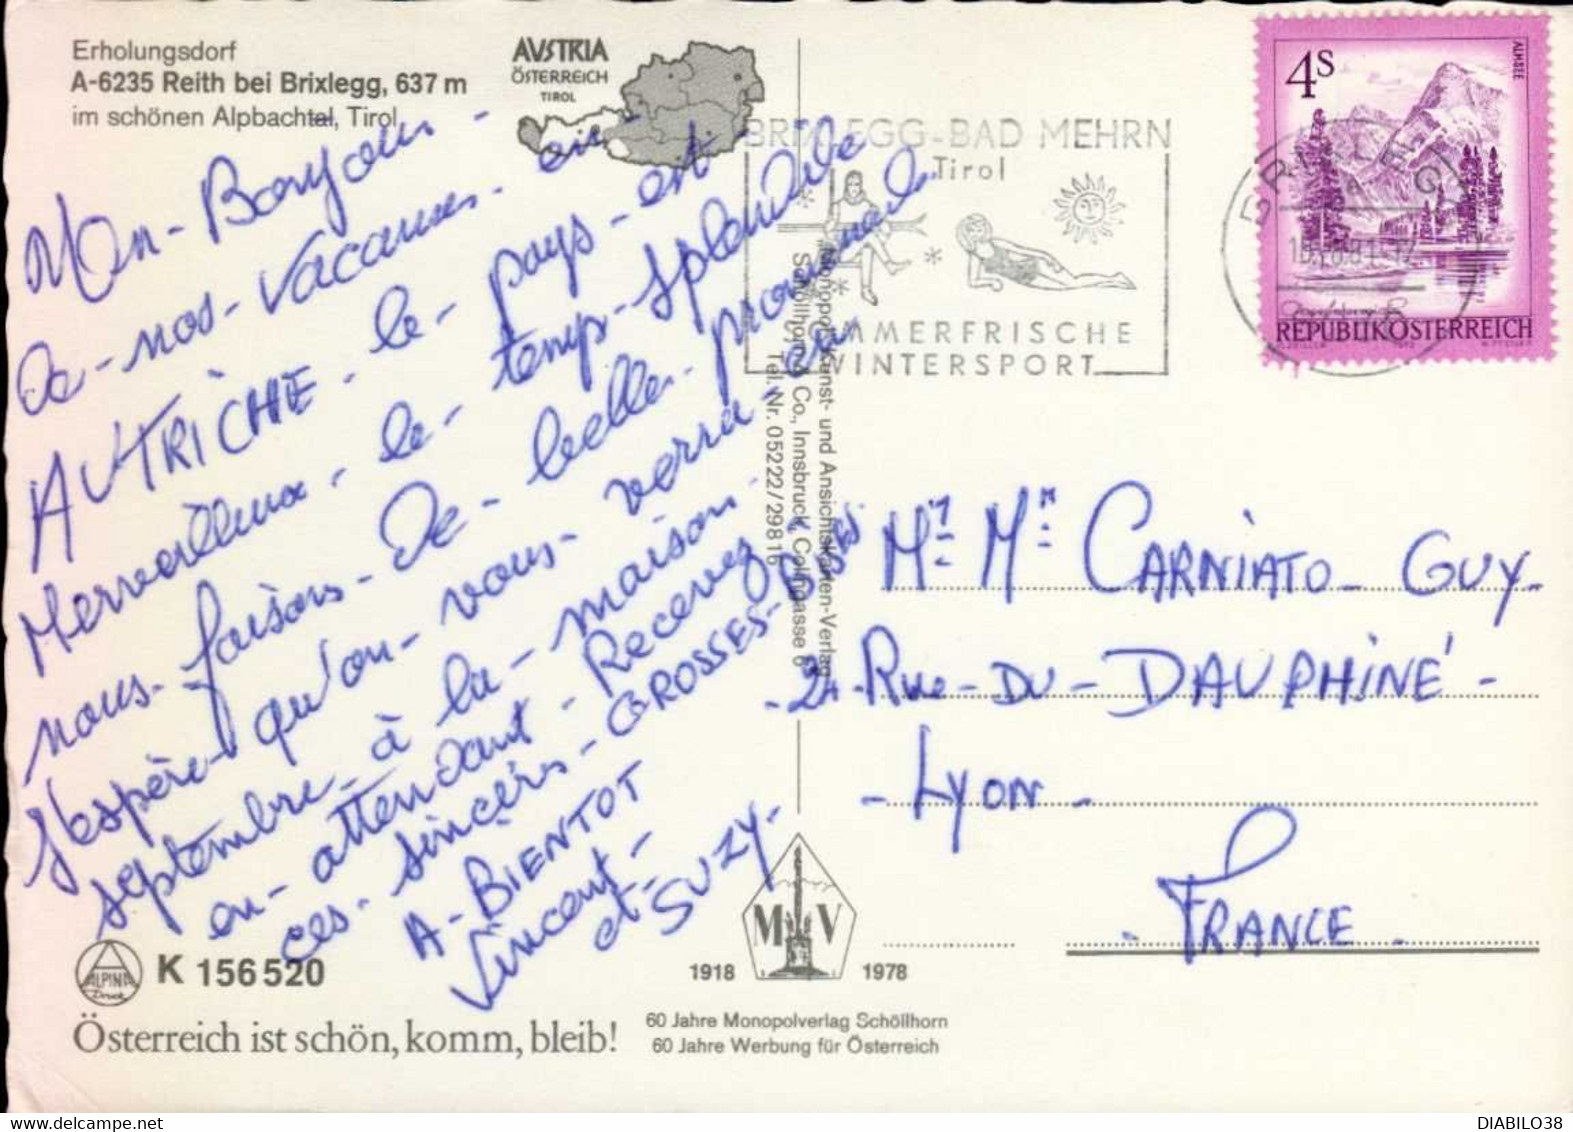 Erholungsdorf
A-6235 Reith bei Brixlegg, 637 m
im schönen Alpbachtal, Tirol
AUSTRIA
ÖSTERREICH
TIROL
Mon - Bonjour -
De - nos - vacances - en
AUTRICHE - le - pays - est
Merveilleux - le - temps - splendide
nous - faisons - De - belles - promenades
J'espère - qu'on - vous - verra - en
septembre - à - la - maison -
en - attendant - Recevez
ces - sincèrs - GROSSES - BISES
A - BIENTOT
Vincent -
et -
SUZY -
BRIXLEGG-BAD MEHRN
Tirol
SOMMERFRISCHE
WINTERSPORT
4S
ALMSEE
REPUBLIK ÖSTERREICH
BRIXLEGG
Monopol, Kunst- und Ansichtskarten-Verlag
Schöllhorn & Co., Innsbruck, Colingasse 6
Tel. Nr. 05222/29816
Mr Mr CARNIATO - GUY -
- 24 - Rue - DU - DAUPHINÉ -
- Lyon -
- FRANCE -
ALPINA
Druck
K 156520
M V
1918 1978
60 Jahre Monopolverlag Schöllhorn
60 Jahre Werbung für Österreich
Österreich ist schön, komm, bleib!
DIABILO38